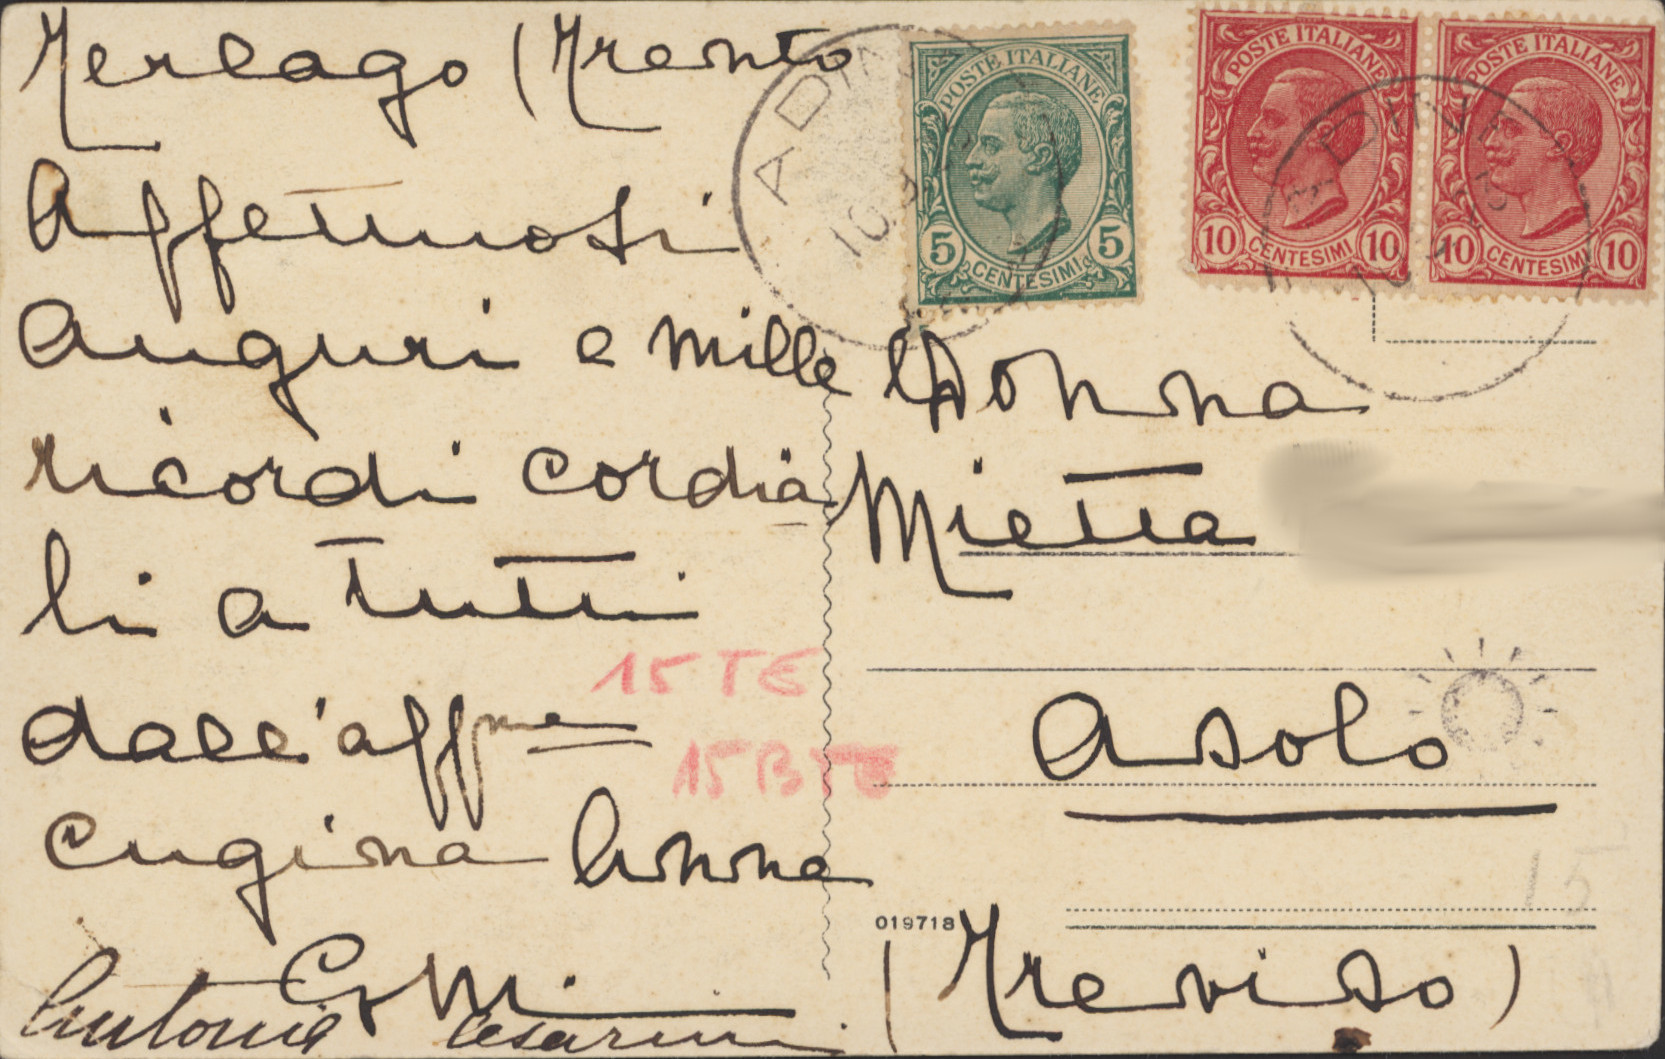 Terlago (Trento
Affettuosi
Auguri e mille
ricordi cordia
li a tutti
dall'aff.me
Cugina Anna
Antonio Cesarini
15 TE
15 BTE
POSTE ITALIANE
5 CENTESIMI 5
POSTE ITALIANE
10 CENTESIMI 10
POSTE ITALIANE
10 CENTESIMI 10
Donna
Mietta
Asolo
15
019718
(Treviso)